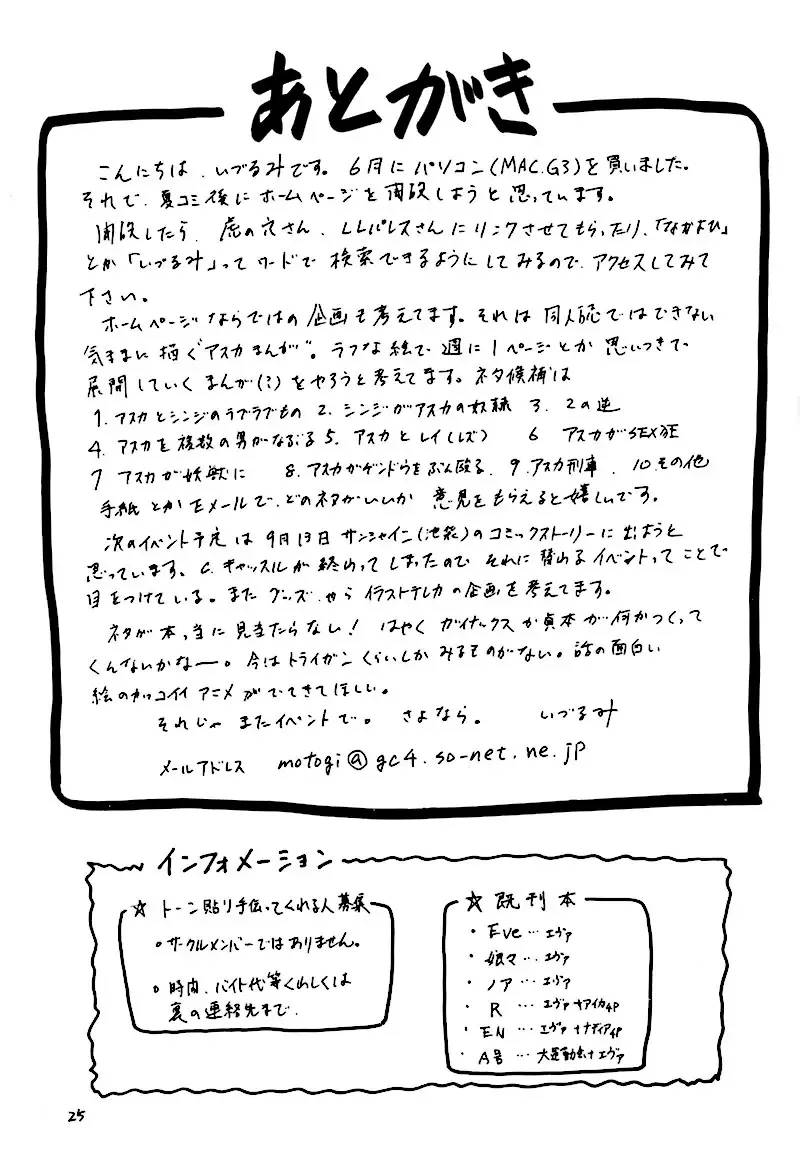 あとがき
こんにちは、いづるみです。6月にパソコン(MAC.G3)を買いました。
それで、夏コミ後にホームページを開設しようと思っています。
開設したら、虎の穴さん、LLパレスさんにリンクさせてもらったり、「なかよひ」
とか「いづるみ」ってワードで検索できるようにしてみるので、アクセスしてみて
下さい。
ホームページならではの企画も考えてます。それは同人誌ではできない
気ままに描く“アスカまんが”。ラフな絵で週に1ページとか思いつきで
展開していくまんが(?)をやろうと考えてます。ネタ候補は
1.アスカとシンジのラブラブもの 2.シンジがアスカの奴隷 3.2の逆
4.アスカを複数の男がなぶる 5.アスカとレイ(レズ) 6 アスカがSEX狂
7 アスカが妖獣に 8.アスカがゲンドウをぶん殴る。9.アスカ刑事 10.その他
手紙とかEメールで、どのネタがいいか意見をもらえると嬉しいです。
次のイベント予定は9月13日サンシャイン(池袋)のコミックストーリーに出ようと
思っています。C.キャッスルが終わってしまったので それに替わるイベントってことで
目をつけている。また グッズ やら イラストテレカの企画を考えてます。
ネタが本当に見当たらない! はやくガイナックスか貞本が何かつくって
くんないかなー。今はトライガンくらいしかみるものがない。話の面白い
絵のカッコイイアニメがでてきてほしい。
それじゃまたイベントで。さよなら。 いづるみ
メールアドレス motogi@gc4.so-net.ne.jp
インフォメーション
☆トーン貼り手伝ってくれる人募集
・サークルメンバーではありません。
・時間、バイト代等くわしくは
裏の連絡先まで.
☆既刊本
・Eve…エヴァ
・娘々…エヴァ
・ノア…エヴァ
・R …エヴァ+アイカ4P
・EN …エヴァ+ナディア4P
・A号 …大運動会+エヴァ
25